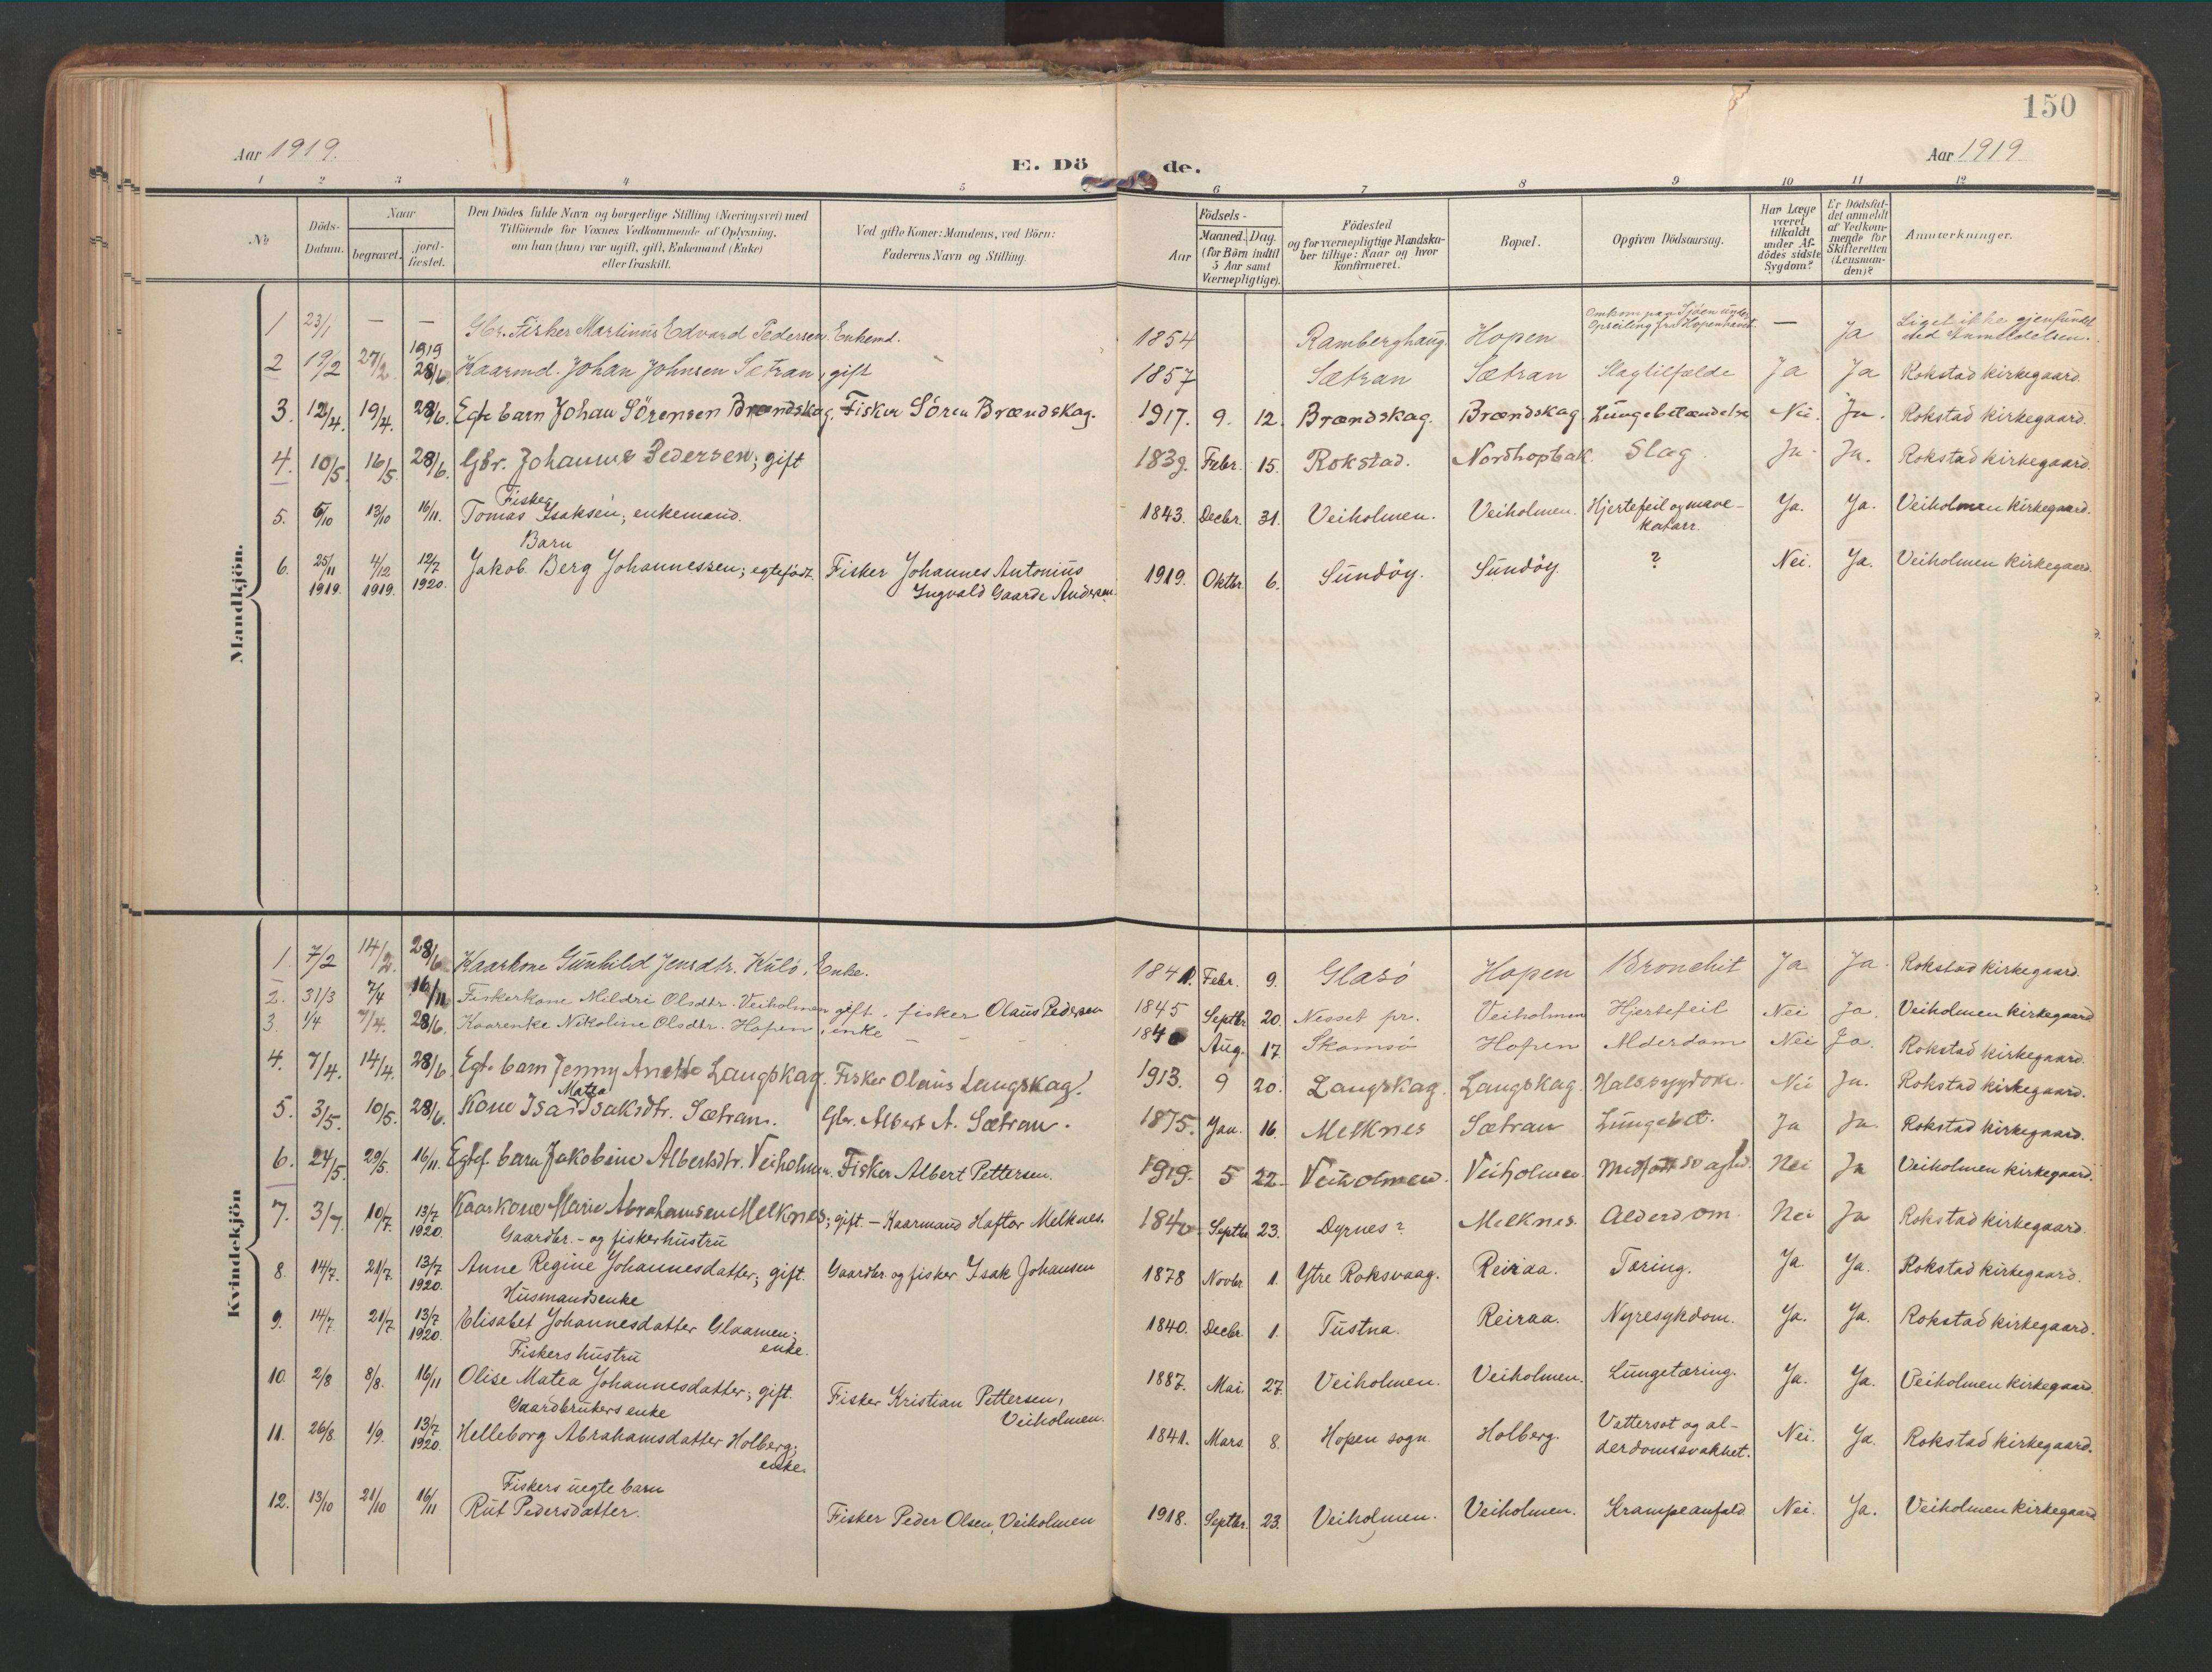 150
Aar 1919.
E. Dö
de.
Aar 1919
1 2 3 4 5 6 7 8 9 10 11 12
№
Döds-
Datum.
Naar
begravet.
jord-
fæstet.
Den Dödes fulde Navn og borgerlige Stilling (Næringsvei) med
Tilföiende for Voxnes Vedkommende af Oplysning,
om han (hun) var ugift, gift, Enkemand (Enke)
eller fraskilt.
Ved gifte Koner: Mandens, ved Börn:
Faderens Navn og Stilling.
Födsels-
Aar
Maaned.
Dag.
(for Börn indtil
5 Aar samt
Værnepligtige).
Födested
og for værnepligtige Mandska-
ber tillige: Naar og hvor
konfirmeret.
Bopæl.
Opgiven Dödsaarsag.
Har Læge
været
tilkaldt
under Af-
dödes sidste
Sygdom?
Er Dödsfal-
det anmeldt
af Vedkom-
mende for
Skifteretten
(Lensman-
den)?
Anmærkninger.
Mandkjön.
1 23/1 — — Gbr. Fisker Martinus Edvard Pedersen, Enkemd. 1854 Ramberghaug. Hopen Omkom paa Sjøen under Opseiling fra Hopenhavet. — Ja Liget ikke gjenfundet ved Anmeldelsen.
2 19/2 27/2. 1919 28/6. Kaarmd. Johan Johnsen Sætran, gift 1857 Sætran Sætran Slagtilfælde Ja Ja Rokstad kirkegaard.
3. 12/4. 19/4. 28/6. Egte barn Johan Sörensen Brændskag. Fisker Sören Brændskag. 1917. 9. 12. Brændskag. Brændskag Lungebetændelse Nei. Ja. Rokstad kirkegaard.
4. 10/5. 16/5. 28/6. Gbr. Johannes Pedersen; gift 1839. Febr. 15. Rokstad. Nordhopbak. Slag. Ja Ja. Rokstad kirkegaard.
5. 6/10 13/10 16/11. Fisker Tomas Isaksen; enkemand. 1843. Decbr. 31. Veiholmen. Veiholmen. Hjertefeil og mave-
katarr. Ja. Ja. Veiholmen kirkegaard.
6. 25/11 1919. 4/12 1919. 12/7 1920. Barn Jakob Berg Johannessen; egtefödt. Fisker Johannes Antonius
Ingvald Gaarde Andersen. 1919. Oktbr. 6. Sundöy. Sundöy. ? Nei. Ja. Veiholmen kirkegaard.
Kvindekjön
1. 7/2 14/2. 28/6 Kaarkone Gunhild Jensdtr. Kulö, Enke. 1841. Febr. 9. Glasö Hopen Bronchit Ja Ja. Rokstad kirkegaard.
2. 31/3 7/4 16/11 Fiskerkone Mildri Olsdtr. Veiholmen gift. fisker Olaus Pedersen 1845 Septbr. 20. Nesset pr. Veiholmen Hjertefeil Nei Ja. Veiholmen kirkegaard
3. 1/4 7/4. 28/6. Kaarenke Nikoline Olsdtr. Hopen, enke — — 1840 Aug. 17 Skomsö Hopen Alderdom Nei Ja. Rokstad kirkegaard.
4. 7/4. 14/4. 28/6. Egte barn Jenny Anette Langskag. Fisker Olaus Langskag. 1913. 9 20. Langskag. Langskag. Halssygdom. Nei Ja. Rokstad kirkegaard.
5. 3/5. 10/5. 28/6. Kone Matea Isaksdtr. Sætran. Gbr. Albert A. Sætran. 1875. Jan. 16. Melknes Sætran Lungebet. Ja Ja. Rokstad kirkegaard.
6. 24/5. 29/5. 16/11. Egtef. barn Jakobine Albertsdtr. Veiholmen. Fisker Albert Pettersen. 1919. 5 22. Veiholmen. Veiholmen. Medfödt svaghd. Nei Ja Veiholmen kirkegaard.
7. 3/7. 10/7. 13/7 1920. Kaarkone Marie Abrahamsen Melknes; gift. — Kaarmand Haftor Melknes. 1840. Septbr. 23. Dyrnes? Melknes. Alderdom. Nei Ja Rokstad kirkegaard.
8. 14/7. 21/7. 13/7 1920. Gaardbr.- og fiskerhustru
Anne Regine Johannesdatter; gift. Gaardbr. og fisker Isak Johansen 1878 Novbr. 1. Ytre Roksvaag. Reiraa. Tæring. Ja. Ja. Rokstad kirkegaard.
9. 14/7. 21/7. 13/7 1920. Husmandsenke
Elisabet Johannesdatter Glaamen;
enke. 1840. Decbr. 1. Tustna. Reiraa. Nyresykdom. Ja. Ja. Rokstad kirkegaard.
10. 2/8 8/8. 16/11 Fiskers hustru
Olise Matea Johannesdatter; gift. Fisker Kristian Pettersen,
Veiholmen. 1887. Mai. 27. Veiholmen. Veiholmen. Lungetæring. Ja. Ja. Veiholmen kirkegaard.
11. 26/8. 1/9. 13/7 1920. Gaardbrukers enke
Helleborg Abrahamsdatter Holberg;
enke. 1841. Mars. 8. Hopen sogn. Holberg. Vattersot og al-
derdomssvakhet. Nei. Ja. Rokstad kirkegaard.
12. 13/10 21/10 16/11 Fiskers uegte barn
Rut Pedersdatter. Fisker Peder Olsen, Veiholmen 1918. Septbr. 23. Veiholmen. Veiholmen. Krampeanfald. Nei. Ja. Veiholmen kirkegaard